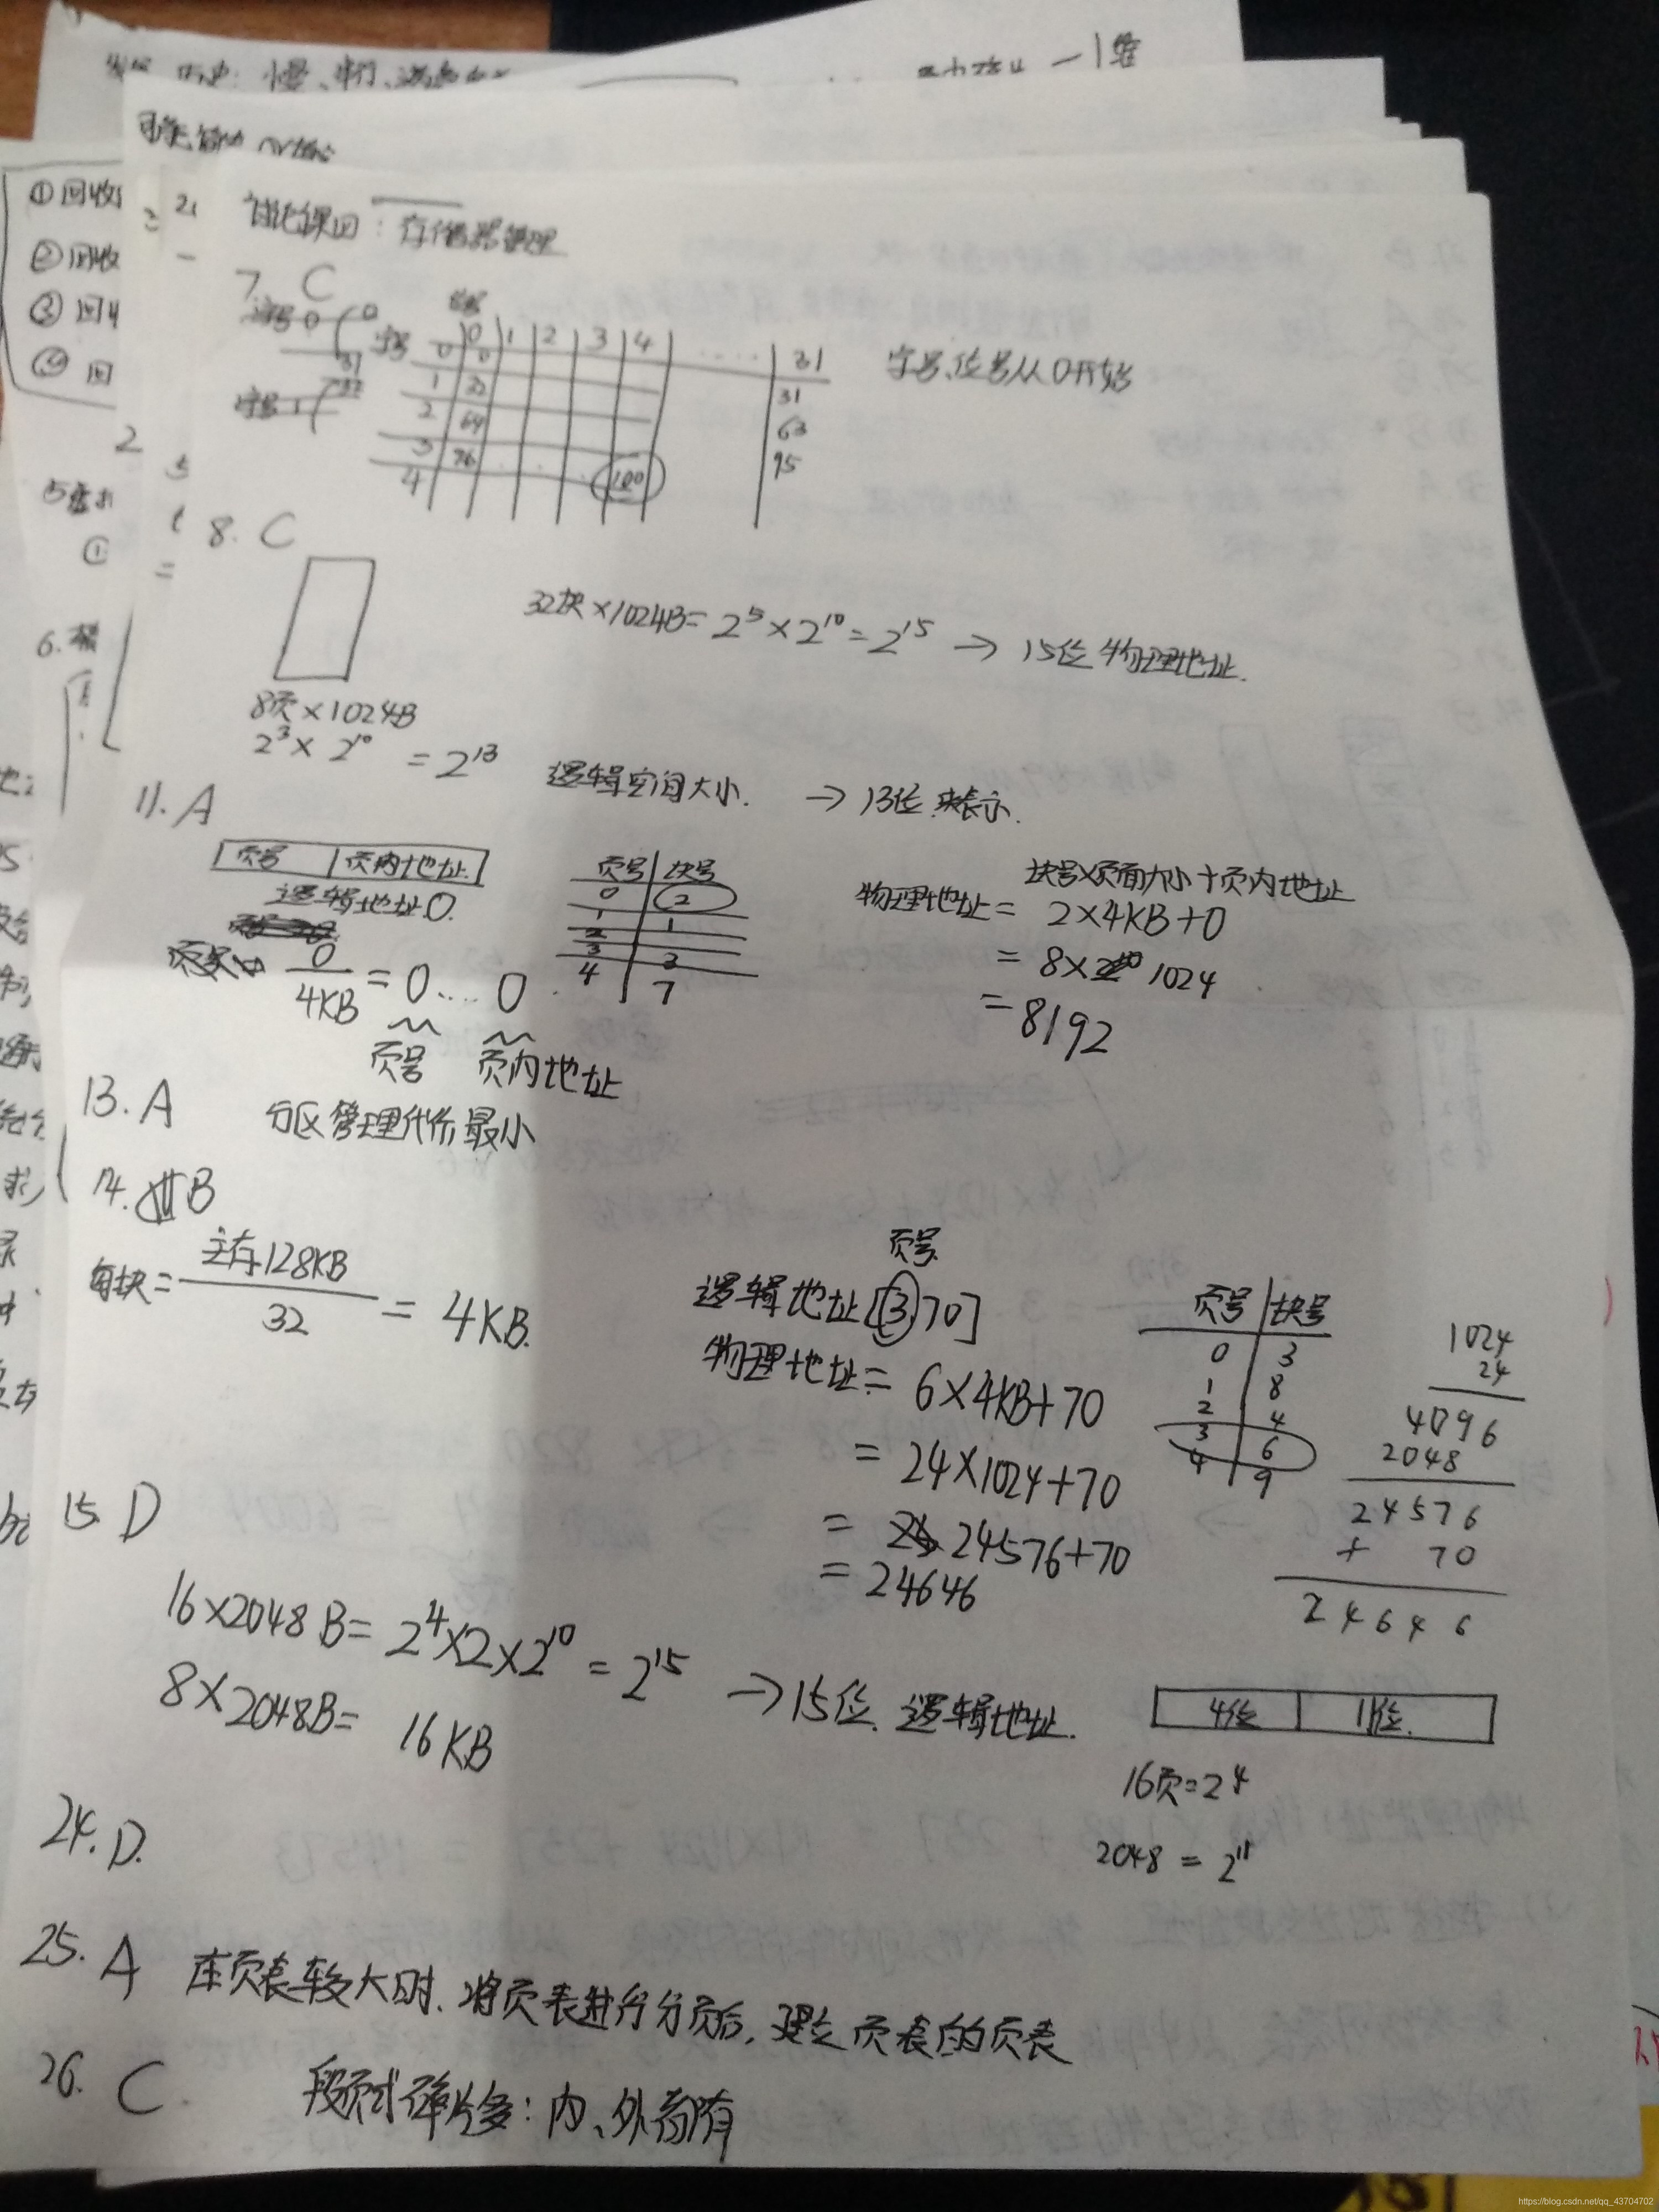 一1笔
①回收
②回收
③回收
④回
讨论课四：存储器管理
7. C
字号0
0
31
字号1
32
字号
0 1 2 3 4 ····· 31
0 0 31
1 32 63
2 64 95
3 76 ····· 100
4
字号、位号从0开始
8. C
32块×1024B=2⁵×2¹⁰=2¹⁵ → 15位物理地址.
8页×1024B
2³×2¹⁰=2¹³ 逻辑空间大小. → 13位来表示.
11. A
页号 | 页内地址
逻辑地址0.
0/4KB=0....0
页号 页内地址
页号 块号
0 2
1 1
2
3 3
4 7
物理地址=块号×页面大小+页内地址
2×4KB+0
=8×1024
=8192
13. A 分区管理代价最小
14. B
每块=主存128KB/32=4KB.
页号
逻辑地址[3,70]
物理地址=6×4KB+70
=24×1024+70
=24576+70
=24646
页号 块号
0 3
1 8
2 4
3 6
4 9
1024
24
4096
2048
24576
+ 70
24646
15. D
16×2048B=2⁴×2×2¹⁰=2¹⁵ →15位.逻辑地址.
8×2048B= 16KB
4位 | 11位.
16页=2⁴
2048=2¹¹
24. D.
25. A 在页表较大时.将页表进行分页后,建立页表的页表
26. C. 段页式碎片多:内、外都有
https://blog.csdn.net/qq_43704702